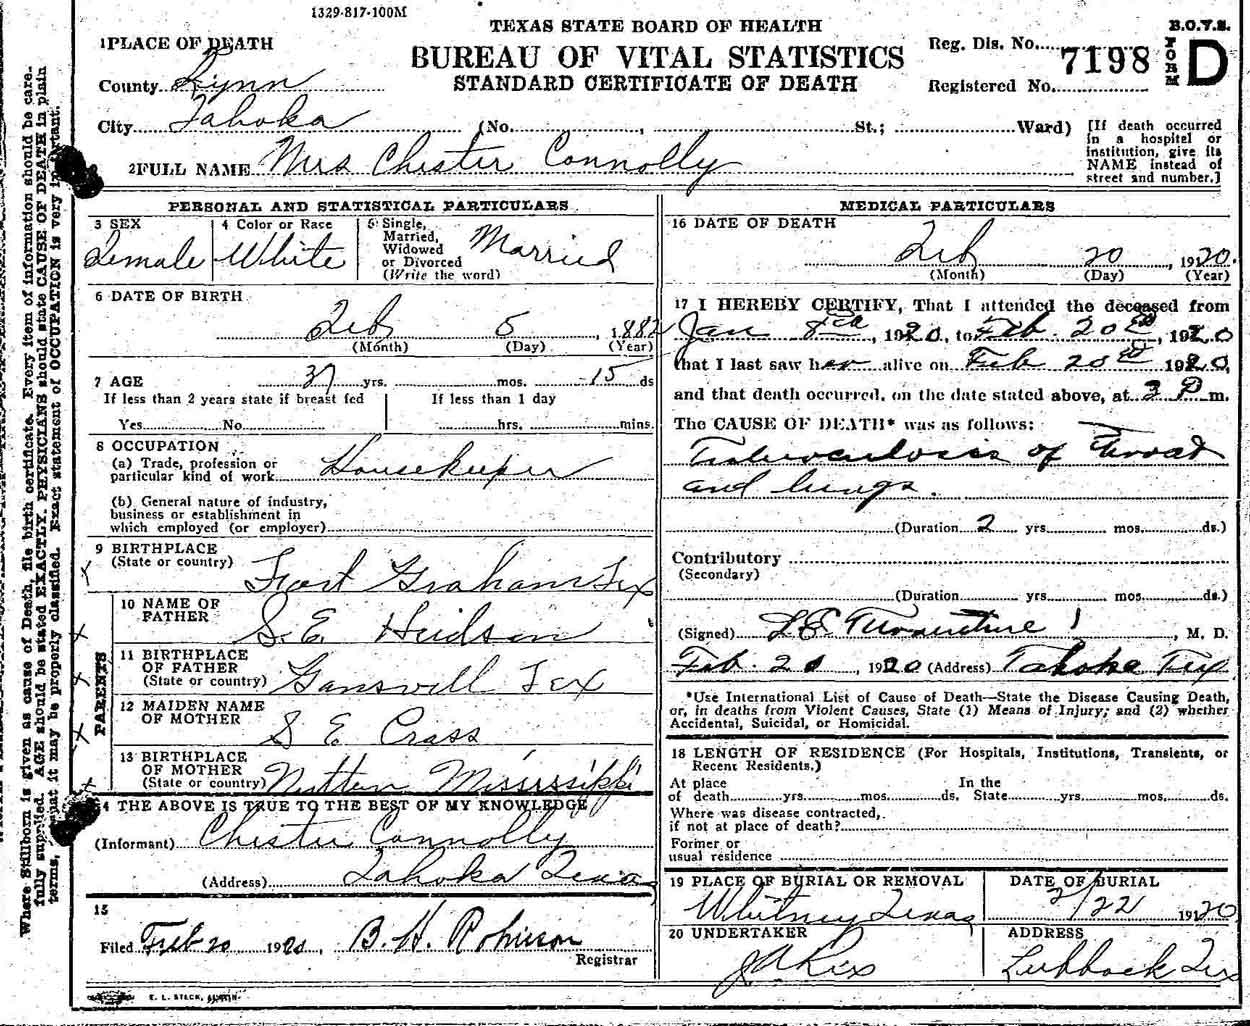 1329-817-100M
TEXAS STATE BOARD OF HEALTH
B.O.V.S.
1 PLACE OF DEATH
BUREAU OF VITAL STATISTICS
Reg. Dis. No. 7198
FORM D
County Lynn
STANDARD CERTIFICATE OF DEATH
Registered No.
City Tahoka (No. , St.; Ward)
[If death occurred in a hospital or institution, give its NAME instead of street and number.]
2 FULL NAME Mrs Chester Connolly
PERSONAL AND STATISTICAL PARTICULARS
3 SEX Female
4 Color or Race White
5 Single, Married, Widowed or Divorced (Write the word) Married
6 DATE OF BIRTH
Feb 5, 1882
(Month) (Day) (Year)
7 AGE 37 yrs. mos. 15 ds
If less than 2 years state if breast fed
Yes No
If less than 1 day
hrs. mins.
8 OCCUPATION
(a) Trade, profession or particular kind of work Housekeeper
(b) General nature of industry, business or establishment in which employed (or employer)
9 BIRTHPLACE
(State or country) Fort Graham Tex
PARENTS
10 NAME OF FATHER S. E. Hudson
11 BIRTHPLACE OF FATHER
(State or country) Gansvill Tex
12 MAIDEN NAME OF MOTHER S E Crass
13 BIRTHPLACE OF MOTHER
(State or country) Mississippi
14 THE ABOVE IS TRUE TO THE BEST OF MY KNOWLEDGE
(Informant) Chester Connolly
(Address) Tahoka Texas
15
Filed Feb 20 1920, B. H. Robinson
Registrar
MEDICAL PARTICULARS
16 DATE OF DEATH
Feb 20, 1920.
(Month) (Day) (Year)
17 I HEREBY CERTIFY, That I attended the deceased from
Jan , 1920, to Feb. 20th, 1920
that I last saw her alive on Feb 20th 1920,
and that death occurred, on the date stated above, at 3 P m.
The CAUSE OF DEATH* was as follows:
Tuberculosis of Throat
and lungs.
(Duration 2 yrs. mos. ds.)
Contributory
(Secondary)
(Duration yrs. mos. ds.)
(Signed) L E Turrentine, M. D.
Feb. 20, 1920 (Address) Tahoka Tex
*Use International List of Cause of Death—State the Disease Causing Death,
or, in deaths from Violent Causes, State (1) Means of Injury; and (2) whether
Accidental, Suicidal, or Homicidal.
18 LENGTH OF RESIDENCE (For Hospitals, Institutions, Transients, or
Recent Residents.)
At place of death yrs. mos. ds. In the State yrs. mos. ds.
Where was disease contracted,
if not at place of death?
Former or
usual residence
19 PLACE OF BURIAL OR REMOVAL
Whitney Texas
DATE OF BURIAL
2/22 1920
20 UNDERTAKER
J A Rix
ADDRESS
Lubbock Tex
E. L. STECK, AUSTIN
Where Stillborn is given as cause of Death, file birth certificate. Every item of information should be care-
fully supplied. AGE should be stated EXACTLY. PHYSICIANS should state CAUSE OF DEATH in plain
terms, that it may be properly classified. Exact statement of OCCUPATION is very important.